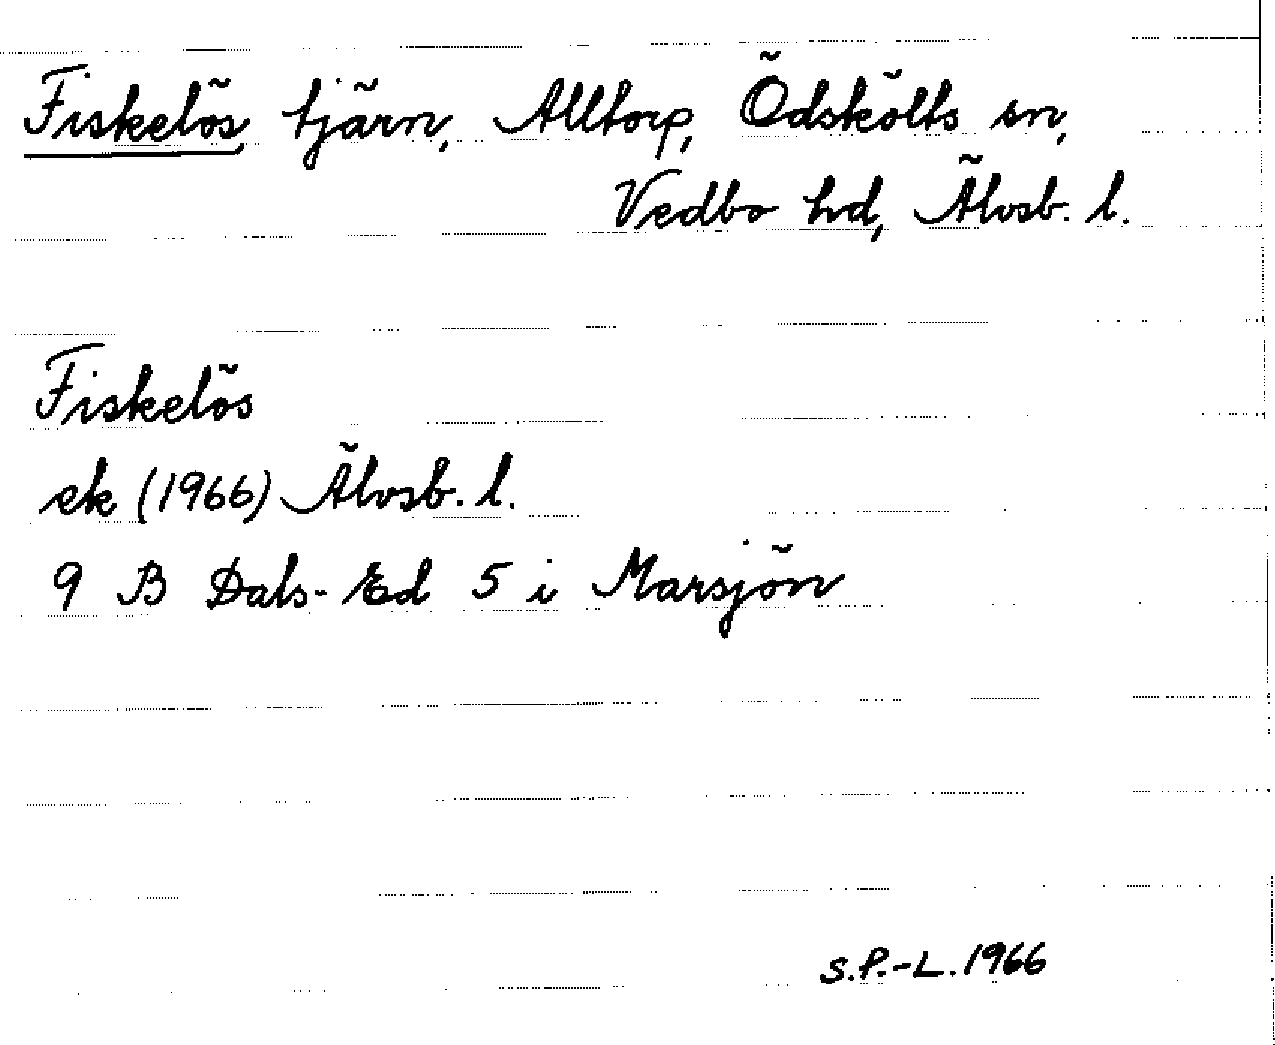 Fiskelös, tjärn, Alltorp, Ödskölts sn,
Vedbo hd, Älvsb. l.
Fiskelös
ek (1966) Älvsb. l.
9 B Dals-Ed 5 i Marsjön
S.P.-L. 1966